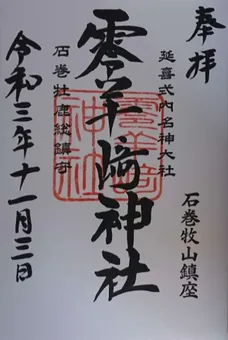 奉拝
石巻牧山鎮座
延喜式内名神大社
零羊﨑神社
石巻牡鹿総鎮守
令和三年十一月三日